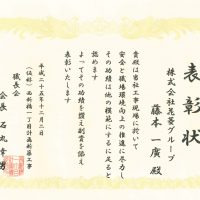 表彰状
株式会社花菱グループ
藤本一廣殿
貴殿は当社工事現場に於いて
安全と職場環境向上の推進に尽力し
その功績は他の模範にするに足ると
認めます
よってその功績を讃え副賞を添え
表彰いたします
平成二十五年十二月二日
職長会
会長 石丸幸勇